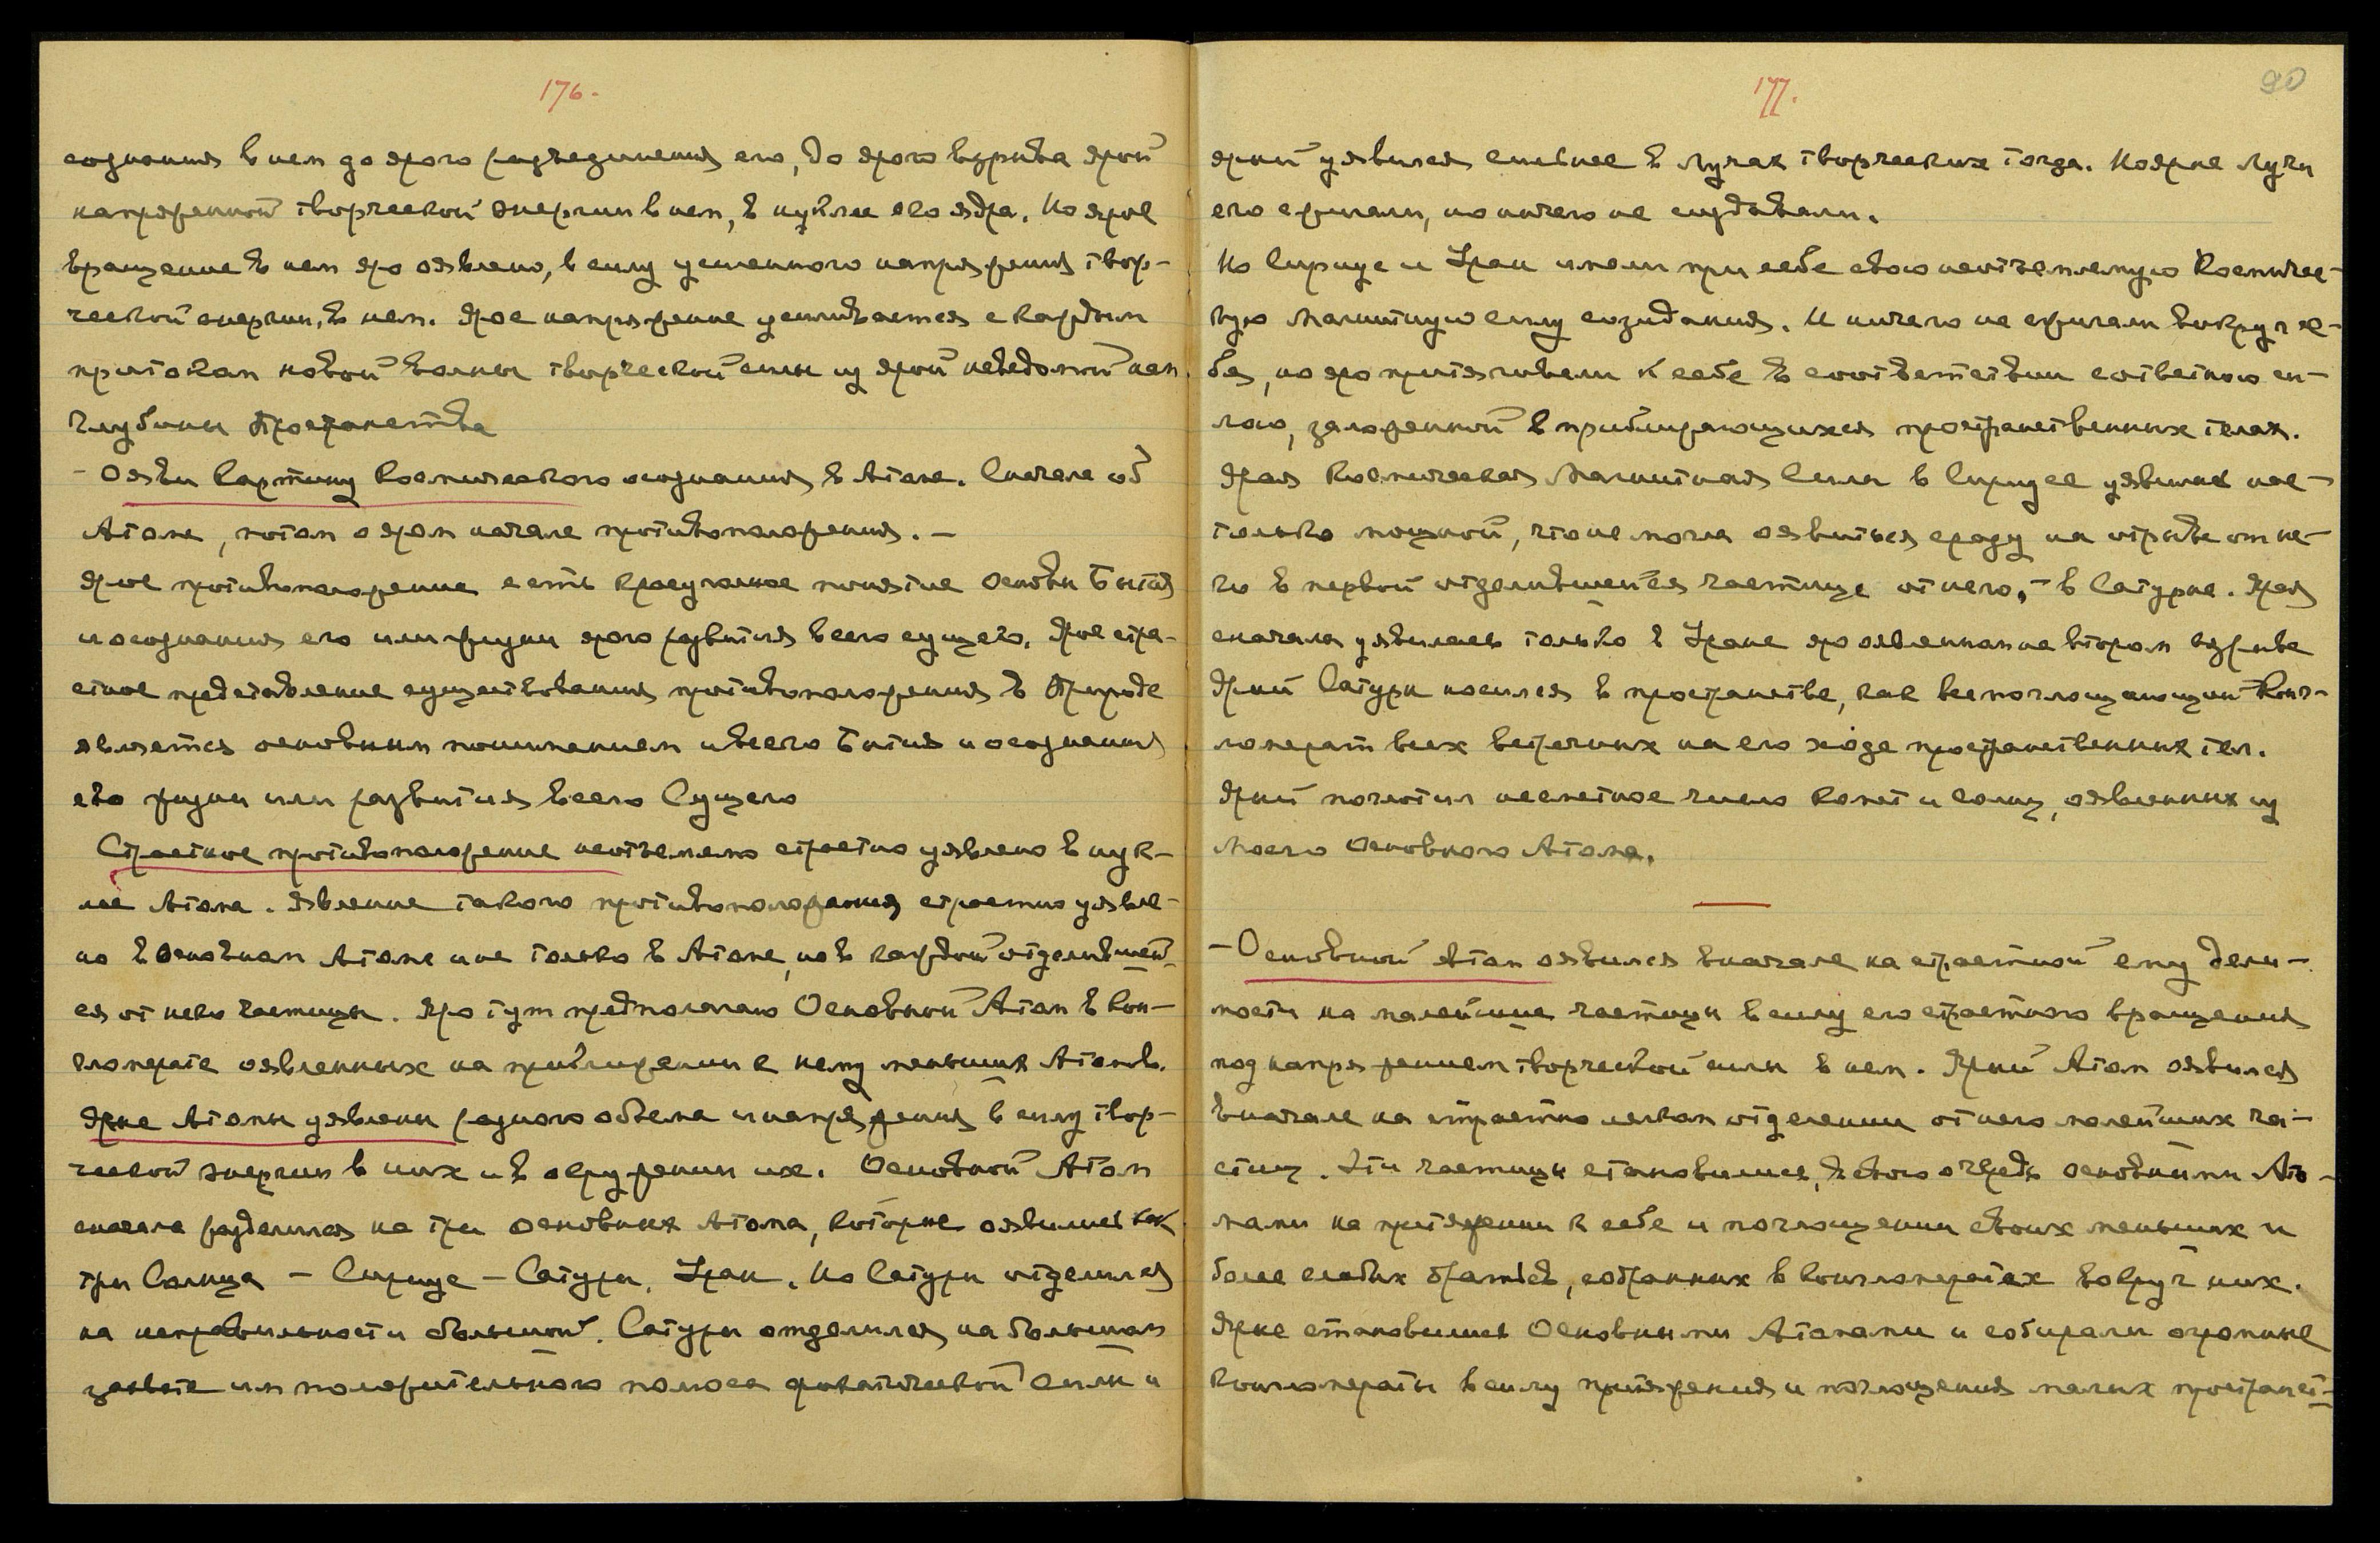 176.
сознания в нем до ярого разъединения его, до ярого взрыва ярой
напряженной творческой энергии в нем, в нуклее его ядра. Но ярое
вращение в нем яро оявлено, в силу усиленного напряжения твор-
ческой энергии, в нем. Ярое напряжение усиливается с каждым
притоком новой волны творческой силы из ярой неведомой нам
глубины Пространства
- Ояви картину космического осознания в Атоме. Сначала об
Атоме, потом о яром начале противоположения. -
Ярое противоположение есть краеугольное понятие Основы Бытия
и осознания его или жизни ярого развития всего сущего. Ярое стра-
стное представление существования противоположения в Природе
является основным пониманием и всего Бытия и осознания
его жизни или развития всего Сущего
Страстное противоположение неотъемлемо страстно уявлено в нук-
лее Атома. Явление такого противоположения страстно уявле-
но в Основном Атоме и не только в Атоме, но в каждой отделившей-
ся от него частицы. Яро тут предполагаю Основной Атом в кон-
гломерате оявленных на приближении к нему меньших Атомов.
Ярые Атомы уявлены разного объема и напряжения в силу твор-
ческой энергии в них и в окружении их. Основной Атом
сначала разделился на три основных Атома, которые оявились как
три Солнца - Сириус - Сатурн, Уран. Но Сатурн отделился
на неправильности большой. Сатурн отделился на большом
захвате им положительного полюса физической силы и
177.
90
ярый уявился сильнее в лучах творческих тогда. Но ярые лучи
его сжигали, но ничего не создавали.
Но Сириус и Уран имели при себе свою неотъемлемую Космичес-
кую Магнитную силу созидания. И ничего не сжигали вокруг се-
бя, но яро притягивали к себе в соответствии с ответною си-
лою, заложенной в приближающихся пространственных телах.
Ярая Космическая Магнитная Сила в Сириусе уявилась нас-
только мощной, что не могла оявиться сразу на отрыве от не-
го в первой отделившейся частице от него, - в Сатурне. Ярая
сначала уявилась только в Уране яро оявленном на втором взрыве
Ярый Сатурн носился в пространстве, как всепоглощающий Конг-
ломерат всех встречных на его ходе пространственных тел.
Ярый поглотил несметное число комет и солнц, оявленных из
моего Основного Атома.
- Основной Атом оявился вначале на страстной ему дели-
мости на малейшие частицы в силу его страстного вращения
под напряжением творческой силы в нем. Ярый Атом оявился
вначале на страстно легком отделении от него малейших ча-
стиц. Эти частицы становились, в свою очередь основными Ато-
мами на притяжении к себе и поглощении своих меньших и
более слабых братьев, собранных в конгломератах вокруг них.
Ярые становились Основными Атомами и собирали огромные
конгломераты в силу притяжения и поглощения малых пространст-